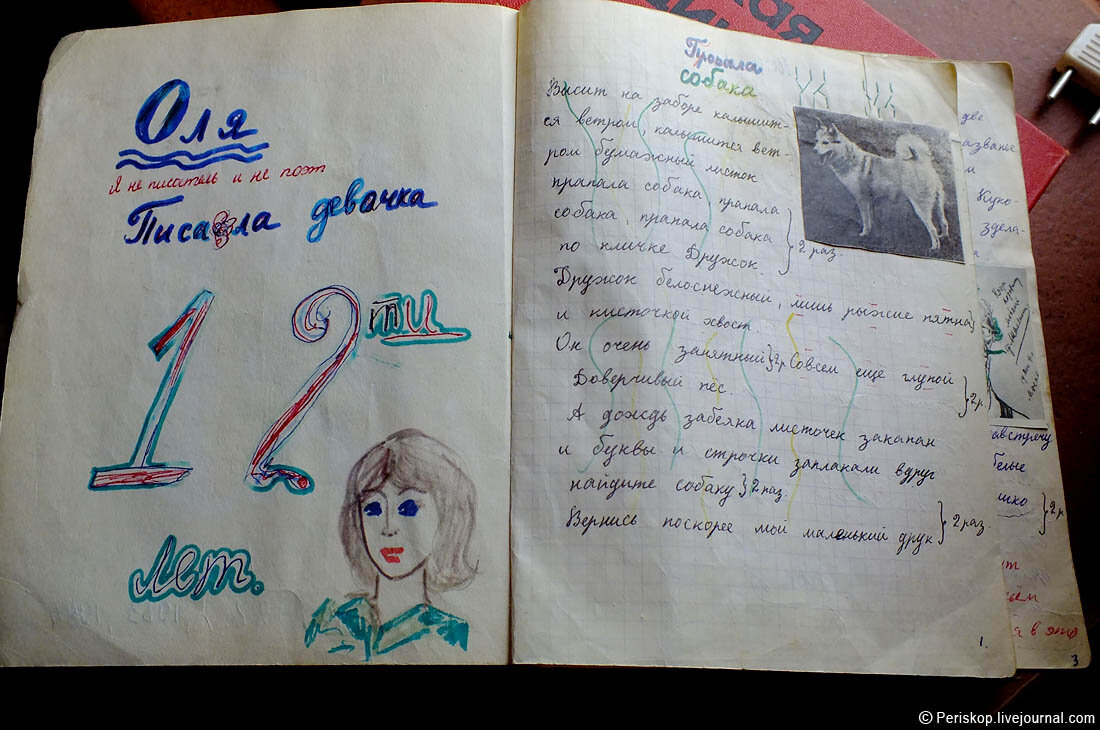 Оля
Я не писатель и не поэт
Писала девочка
12ти
лет.
Пропала
собака
Висит на заборе калышит-
ся ветром, калышится вет-
ром бумажный листок
прапала собака прапала
собака, прапала собака
по кличке Дружок.
} 2 раз.
Дружок белоснежный, лишь рыжие пятна}
и кисточкой хвост.
Он очень занятный}2р Совсем ещё глупой
Доверчивый пёс.
}2р.
А дождь забеяка листочек закапан
и буквы и строчки заплакали вдруг
найдите собаку}2 раз.
Вернись поскорее мой маленький друк} 2 раз.
1.
две
азванье
Куко-
здела-
австречу
белые
шко }2р
я в это
3
© Periskop.livejournal.com